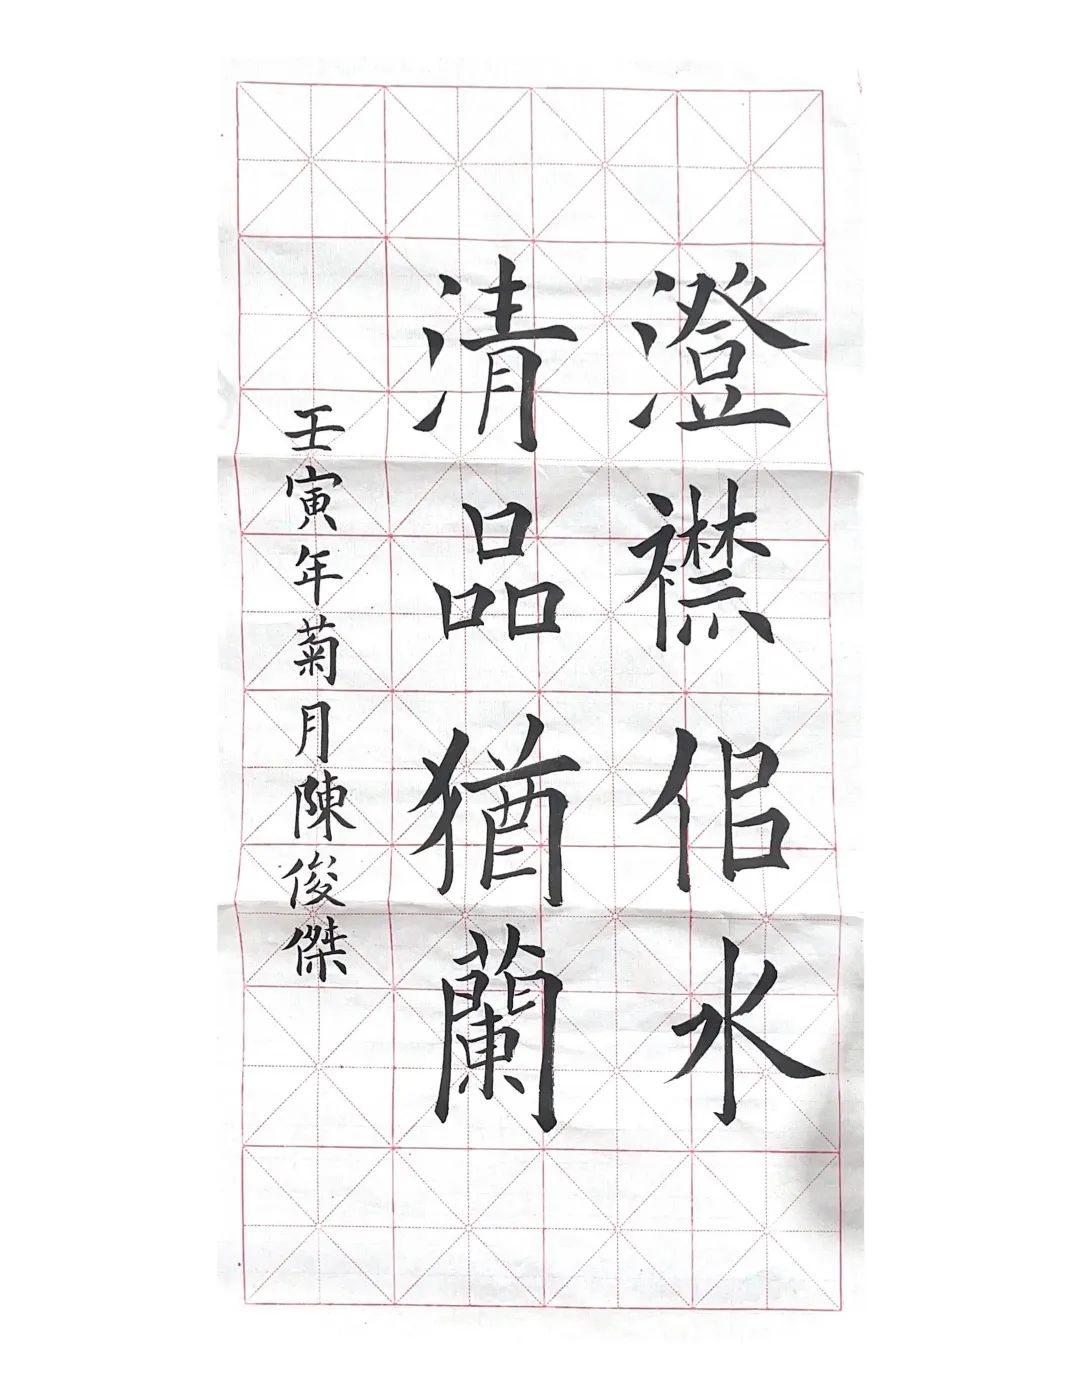 澄襟侣水
清品猶蘭
壬寅年菊月陳俊傑